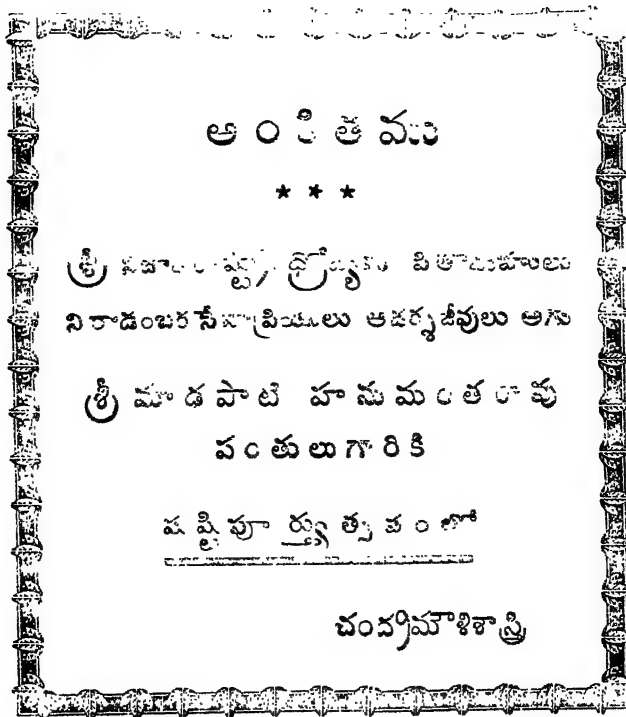 అంకితము
* * *
శ్రీ పితామహులు
నిరాడంబర సేవాప్రియులు ఆదర్శజీవులు అగు
శ్రీ మాడపాటి హనుమంతరావు
పంతులుగారికి
షష్టిపూర్త్యుత్సవంలో
చంద్రమౌళిశాస్త్రి